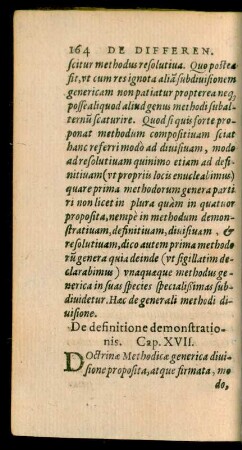 164 DE DIFFEREN.
scitur methodus resolutiua. Quo postea
sit, vt cum res ignota aliā subdiuisionem
genericam non patiatur propterea neq;
posse aliquod aliud genus methodi subal-
ternū scaturire. Quod si quis forte pro-
ponat methodum compositiuam sciat
hanc referri modò ad diuisiuam, modo
ad resolutiuam quinimo etiam ad defi-
nitiuam (vt proprijs locis enucleabimus)
quare prima methodorum genera parti-
ri non licet in plura quàm in quatuor
proposita, nempè in methodum demon-
stratiuam, definitiuam, diuisiuam, &
resolutiuam, dico autem prima methodo
rū genera quia deinde (vt sigillatim de-
clarabimus) vnaquaeque methodus ge-
nerica in suas species specialissimas sub-
diuidetur. Haec de generali methodi di-
uisione.
De definitione demonstratio-
nis. Cap. XVII.
DOctrinae Methodicae generica diui-
sione proposita, atque firmata, mo-
do,